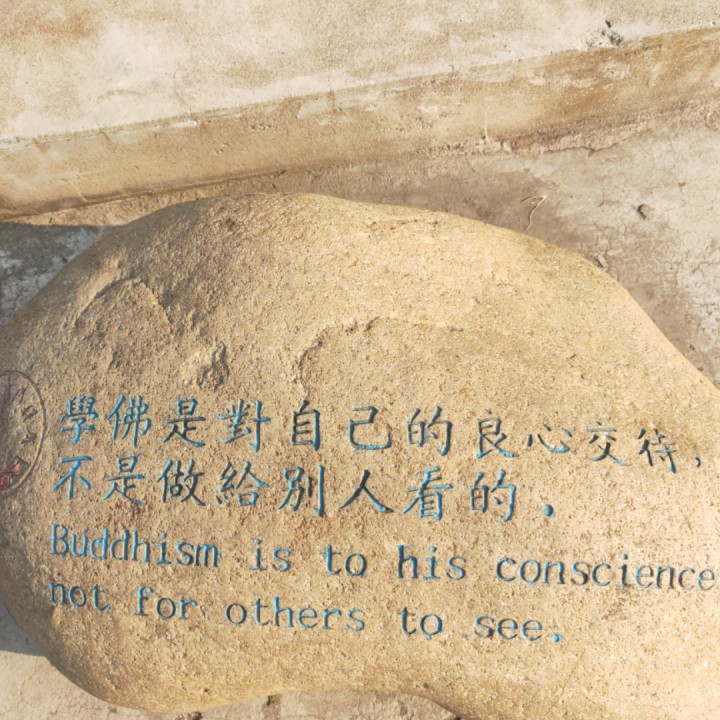 學佛是對自己的良心交待，
不是做給別人看的．
Buddhism is to his conscience
not for others to see.